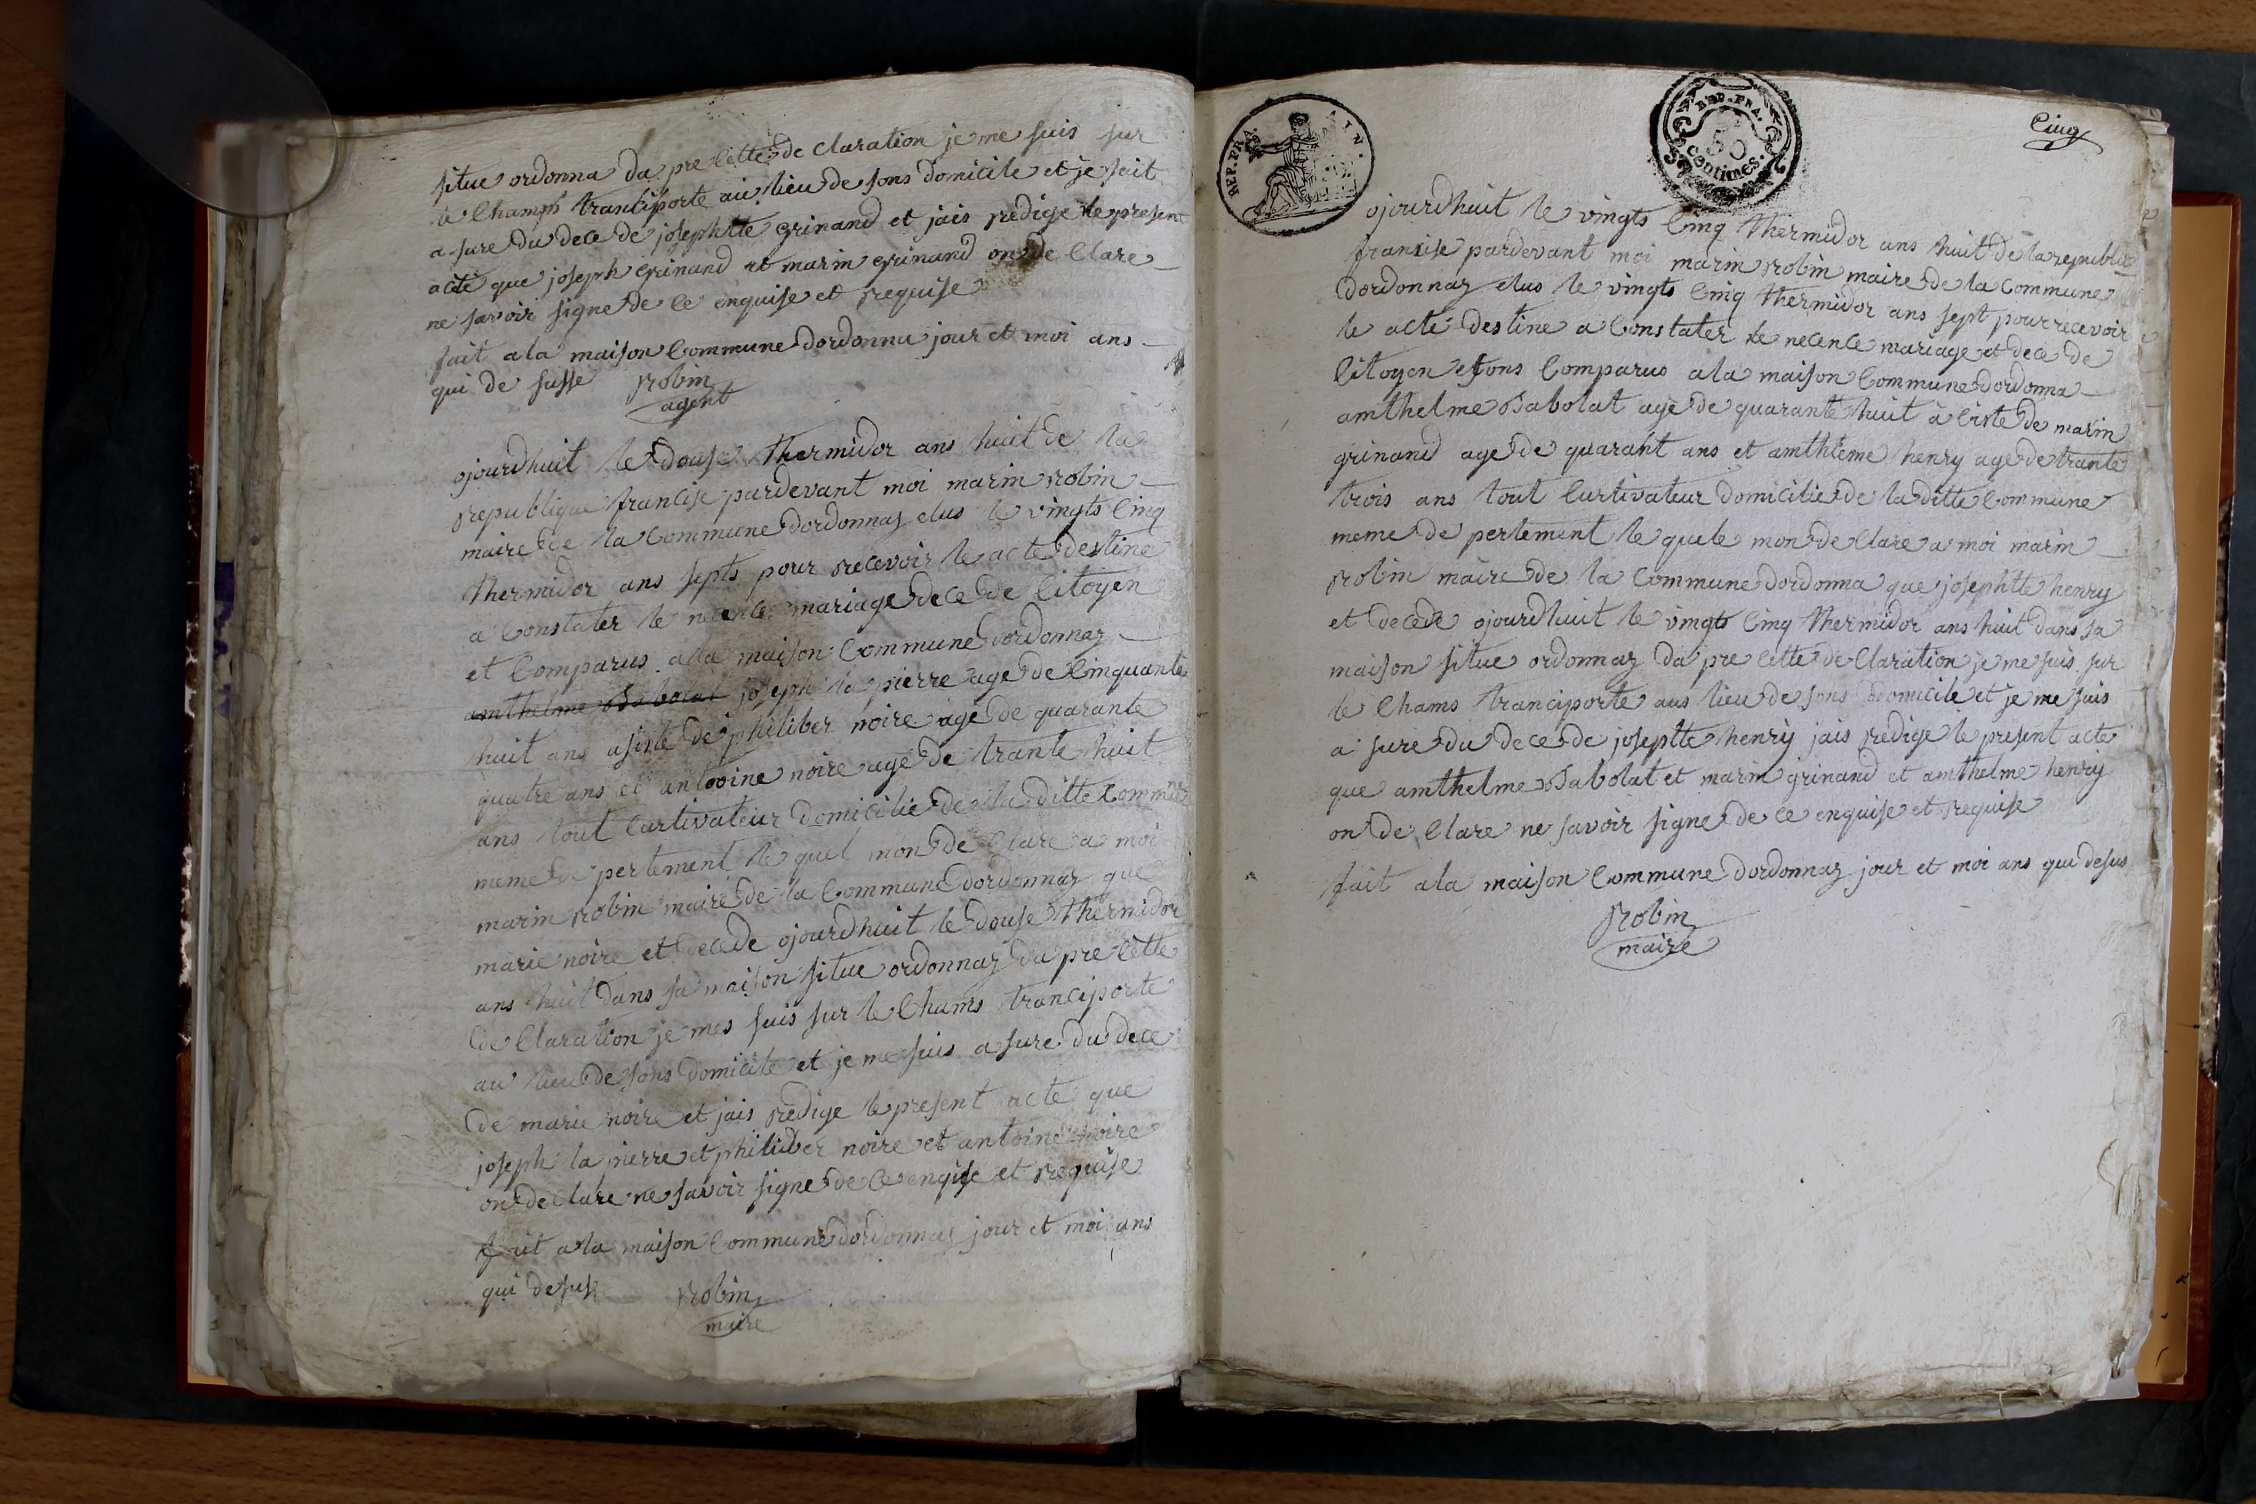 situe ordonna da pre cette de claration je me suis sur
le Champs tranciporte au lieu de sons domicile et je suit
a sure du dece de josephtte grinand et jaisredige le present
acte que joseph grinand et marin grinand on de Clare
ne savoir signe de ce enquise et requise
fait a la maison Commune dordonna jour et moi ans
qui de susse Robin
agent
ojourdhuit le douse thermidor ans huit de la
republique francise pardevant moi marin robin
maire de la Commune dordonnaz elus le vingts Cinq
thermidor ans septs pour recevoir le acte destine
a Constater le necence mariage dece de Citoyen
et Comparus a la maison Commune dordonnaz
amthelme Babolat joseph la pierre age de Cinquante
huit ans asiste de philiber noire age de quarante
quatre ans et antooine noire age de trante huit
ans tout Curtivateur domicilie de la ditte Commune
meme de pertement le quel mon de Clare a moi
marin robin maire de la Commune dordonnaz que
marie noire et decede ojourdhuit le douse thermidor
ans huit dans sa maison situe ordonnaz da pre cette
de Claration je mes suis sur le Chams tranciporte
au lieu de sons domicile et je me suis a sure du dece
de marie noire et jais redige le present acte que
joseph la pierre et philiber noire et antoine noire
on de Clare ne savoir signe de ce enqise et requise
fait a la maison Commune dordonnaz jour et moi ans
qui desus Robin
maire
REP. FRA
AIN.
REP. FRA.
50
centimes.
Cinq
ojourdhuit le vingts Cinq thermidor ans huit de la republice
francise pardevant moi marin robin maire de la Commune
dordonnaz elus le vingts Cinq thermidor ans sept pour recevoir
le acte destine a Constater le necence mariage et dece de
Citoyen et sons Comparus a la maison Commune dordonna
amthelme Babolat age de quarante huit à Ciste de marin
grinand age de quarant ans et amthleme henry age de trante
trois ans tout Curtivateur domicilie de la ditte Commune
meme de pertement le quele mon de Clare a moi marin
robin maire de la Commune dordonna que josephtte henry
et decede ojourdhuit le vingts Cinq thermidor ans huit dans sa
maison situe ordonnaz da pre cette de Claration je me suis sur
le Chams tranciporte aus lieu de sons domicile et je me suis
a sure du dece de joseptte henry jais redige le present acte
que amthelme Babolat et marin grinand et amthelme henry
on de Clare ne savoir signe de ce enquise et requise
fait a la maison Commune dordonnaz jour et moi ans qui desus
Robin
maire